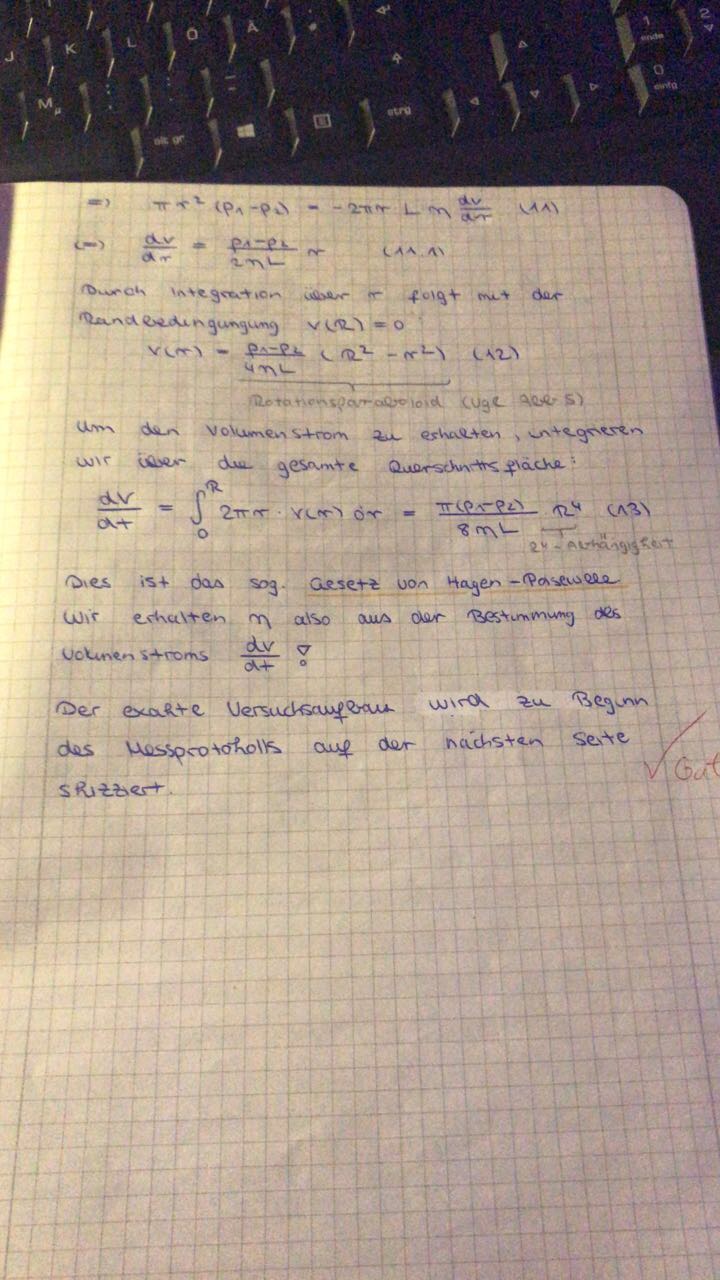 J K L Ö Ä
1 ende
2
M µ
0 einfg
alt gr
strg
=> π r² (p₁-p₂) = -2πr L η dv/dr (11)
(=) dv/dr = p₁-p₂/2ηL r (11.1)
Durch Integration über r folgt mit der
Randbedingungung v(R) = 0
v(r) = p₁-p₂/4ηL (R² - r²) (12)
Rotationsparaboloid (vgl Abb 5)
Um den Volumenstrom zu erhalten, integrieren
wir über die gesamte Querschnittsfläche:
dV/dt = ∫₀ᴿ 2πr · v(r) dr = π(p₁-p₂)/8ηL R⁴ (13)
R⁴-Abhängigkeit
Dies ist das sog. Gesetz von Hagen-Poiseuille
Wir erhalten η also aus der Bestimmung des
Volumenstroms dV/dt !
Der exakte Versuchsaufbau wird zu Beginn
des Messprotokolls auf der nächsten Seite
skizziert.
√ Gut